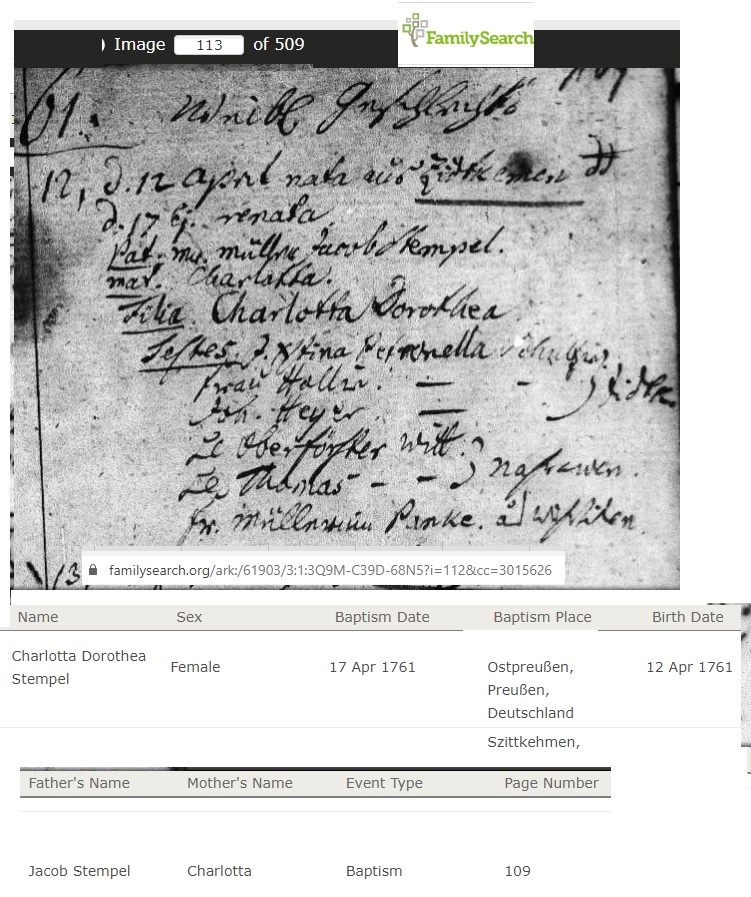 Image 113 of 509
FamilySearch
61.
12, d. 12 April nata aus Zidtkemen
d. 17 ej. renata
Pat. mr. müller Jacob Stempel.
mat. Charlotta.
Filia Charlotta Dorothea
Testes. Petronella
frau
Joh. Heyer.
Oberförster Witt.
Thomas - -
fr. müllerinn Panke.
13
familysearch.org/ark:/61903/3:1:3Q9M-C39D-68N5?i=112&cc=3015626
Name Sex Baptism Date Baptism Place Birth Date
Charlotta Dorothea
Stempel
Female 17 Apr 1761 Ostpreußen, 12 Apr 1761
Preußen,
Deutschland
Szittkehmen,
Father's Name Mother's Name Event Type Page Number
Jacob Stempel Charlotta Baptism 109